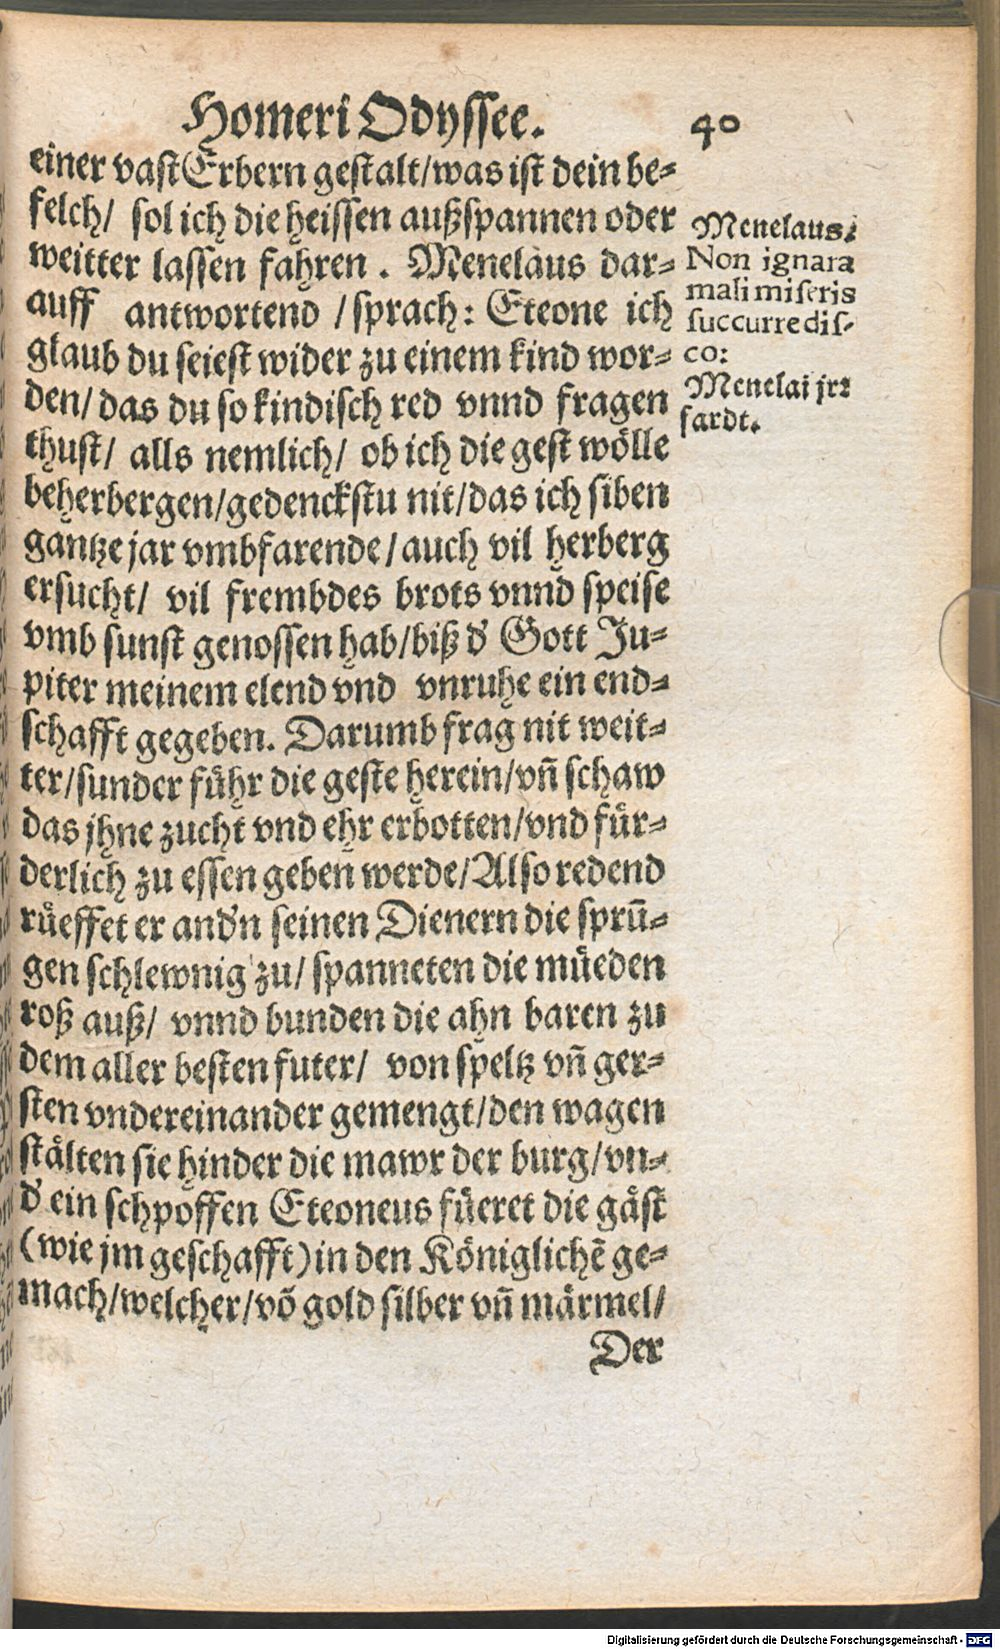 Homeri Odyssee. 40
einer vast Erbern gestalt/was ist dein be⸗
felch/ sol ich die heissen außspannen oder
weitter lassen fahren . Menelaus dar⸗
auff antwortend /sprach: Eteone ich
glaub du seiest wider zu einem kind wor⸗
den/ das du so kindisch red vnnd fragen
thust/ alls nemlich/ ob ich die gest wölle
beherbergen/gedenckstu nit/das ich siben
gantze jar vmbfarende/auch vil herberg
ersucht/ vil frembdes brots vnnd speise
vmb sunst genossen hab/biß d' Gott Ju⸗
piter meinem elend vnd vnruhe ein end⸗
schafft gegeben. Darumb frag nit weit⸗
ter/sunder führ die geste herein/vn̄ schaw
das jhne zucht vnd ehr erbotten/vnd für⸗
derlich zu essen geben werde/Also redend
rüeffet er and'n seinen Dienern die sprū⸗
gen schlewnig zu/ spanneten die müeden
roß auß/ vnnd bunden die ahn baren zu
dem aller besten futer/ von speltz vn̄ ger⸗
sten vndereinander gemengt/den wagen
stälten sie hinder die mawr der burg/vn⸗
d' ein schpoffen Eteoneus füeret die gäst
(wie jm geschafft)in den Königlichē ge⸗
mach/welcher/võ gold silber vn̄ märmel/
Der
Menelaus.
Non ignara
mali miseris
succurre dis-
co:
Menelai jr⸗
fardt.
Digitalisierung gefördert durch die Deutsche Forschungsgemeinschaft - DFG